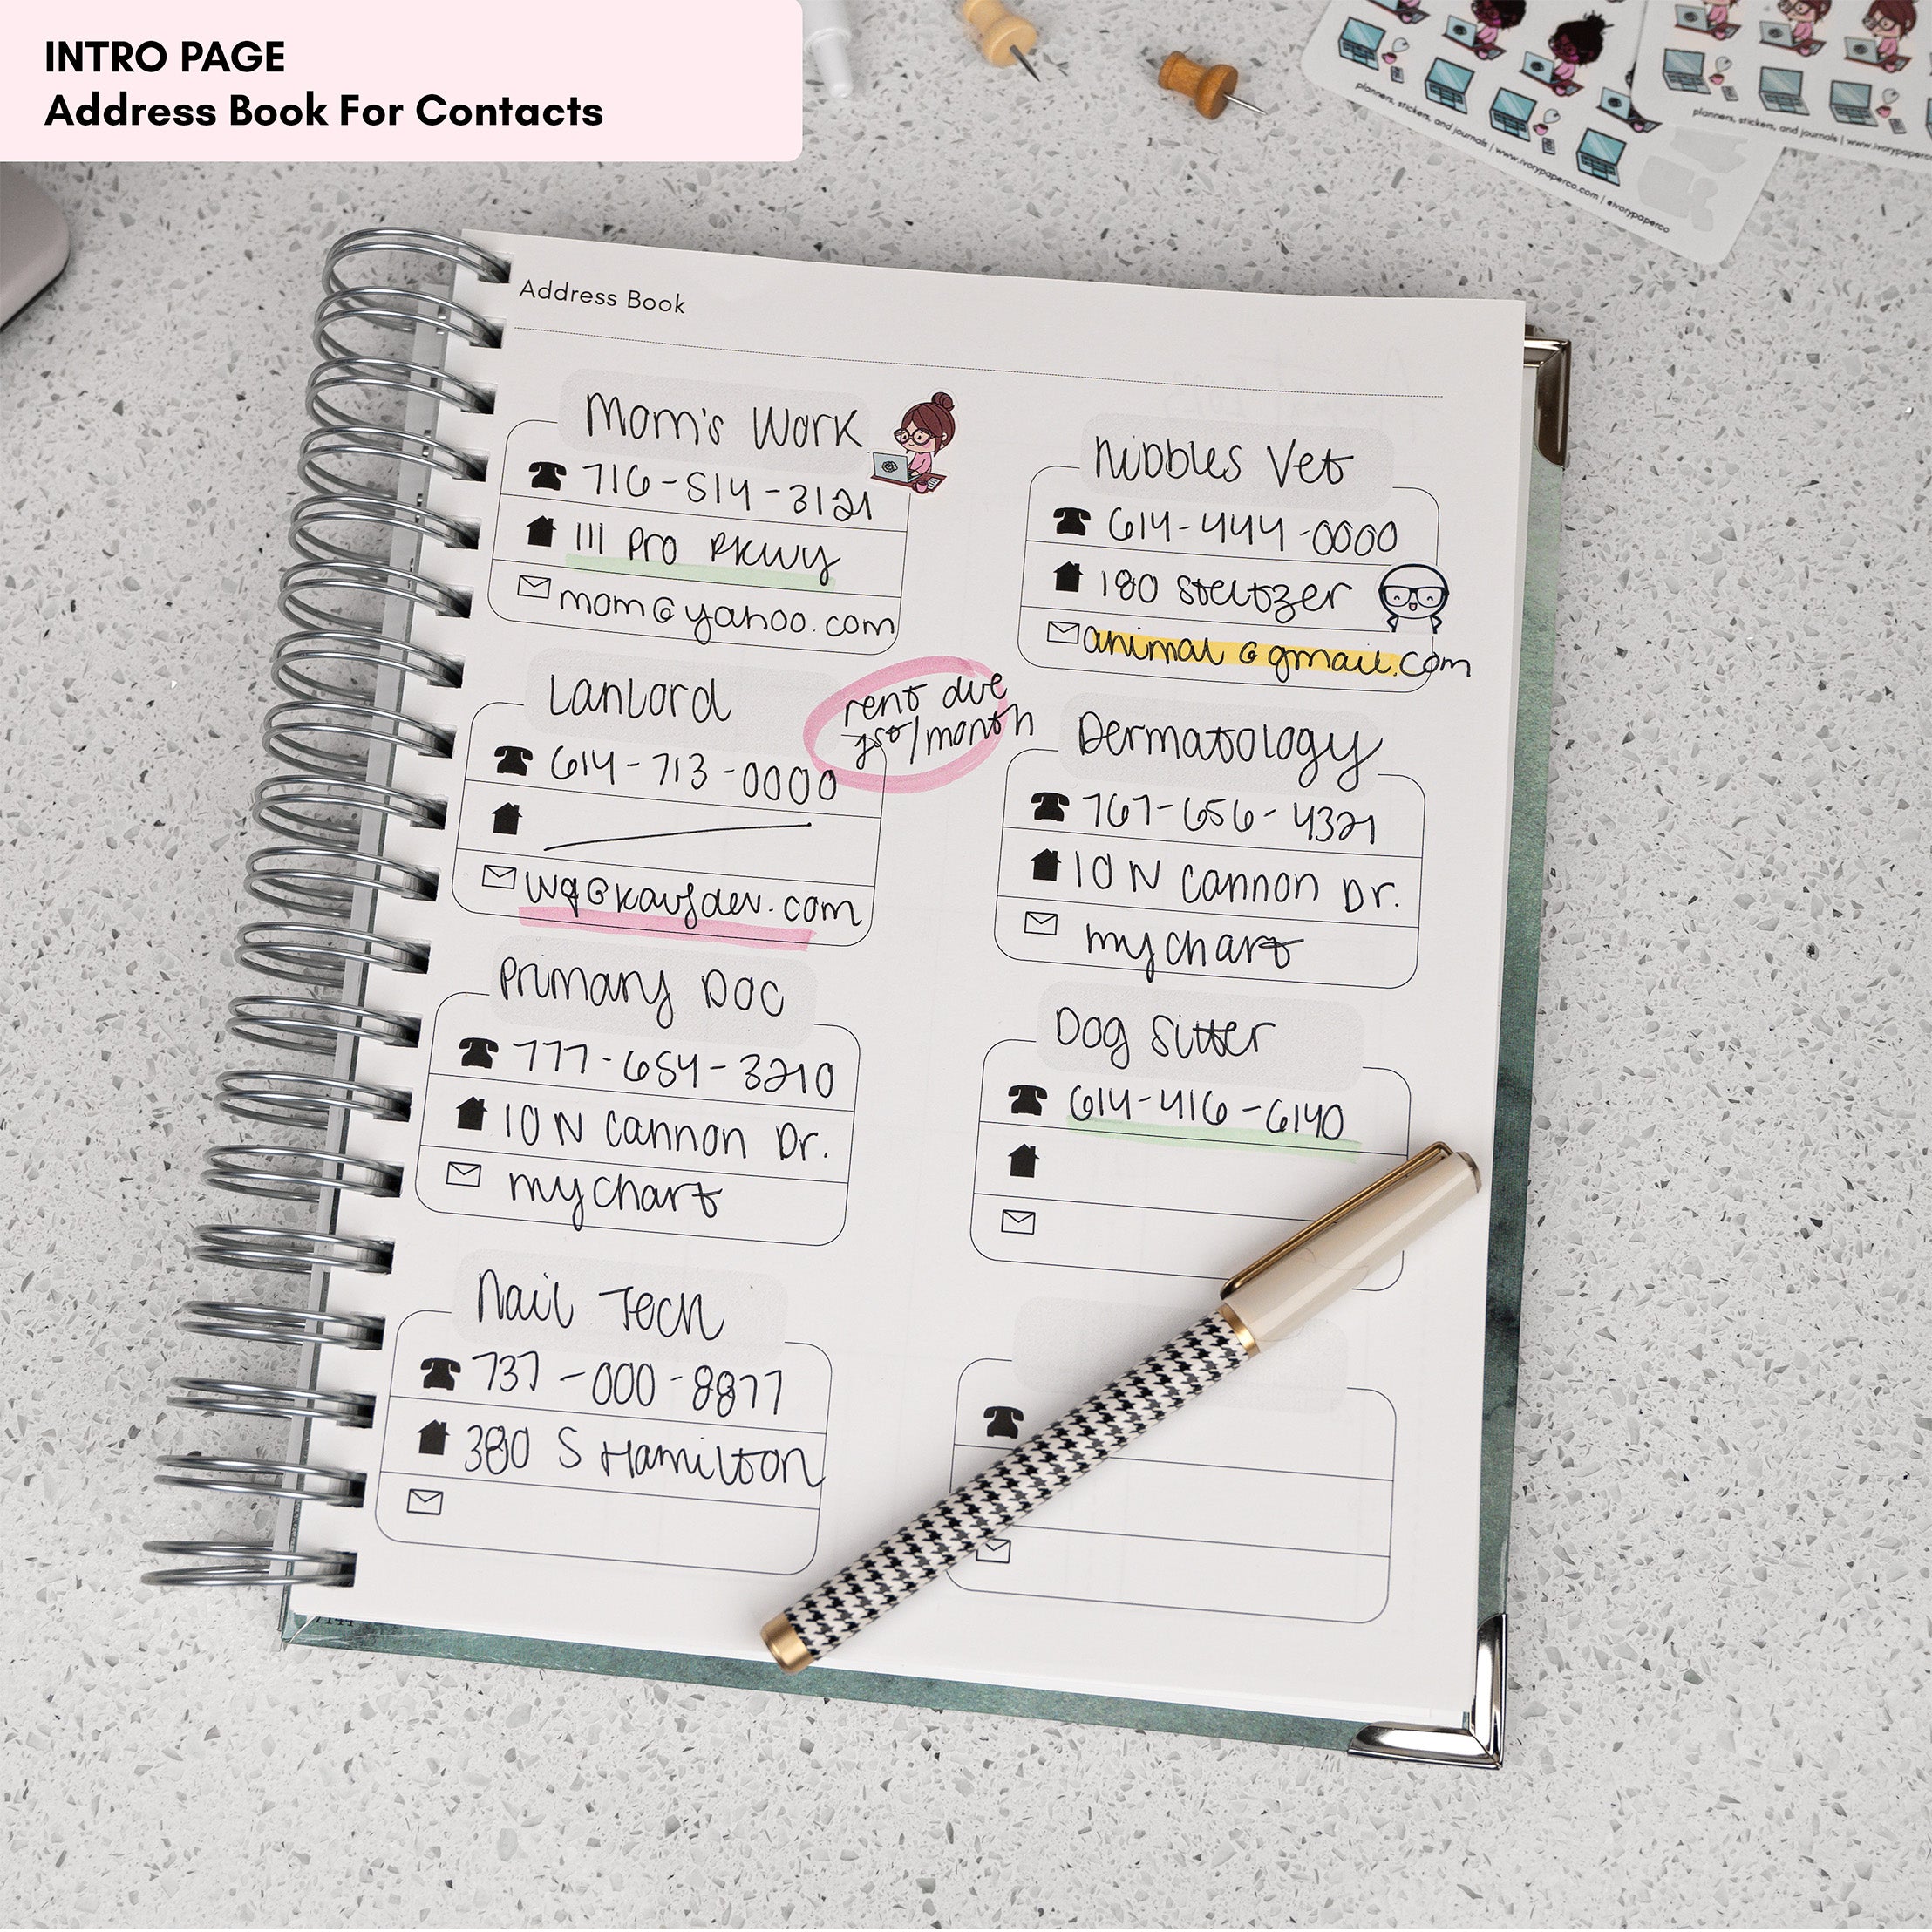 INTRO PAGE
Address Book For Contacts
planners, stickers, and journals | www.ivorypaperco.com | @ivorypaperco
planners, stickers, and journals | www.ivorypaperco
Address Book
Mom's Work
716-514-3121
111 Pro PKWY
mom@yahoo.com
Nibbles Vet
614-444-0000
180 Steltzer
animal@gmail.com
LanLord
614-713-0000
rent due
/month
Dermatology
767-656-4321
10 N Cannon Dr.
mychart
Primary Doc
777-654-3210
10 N Cannon Dr.
mychart
Dog Sitter
614-416-6140
Nail Tech
737-000-8877
380 S Hamilton